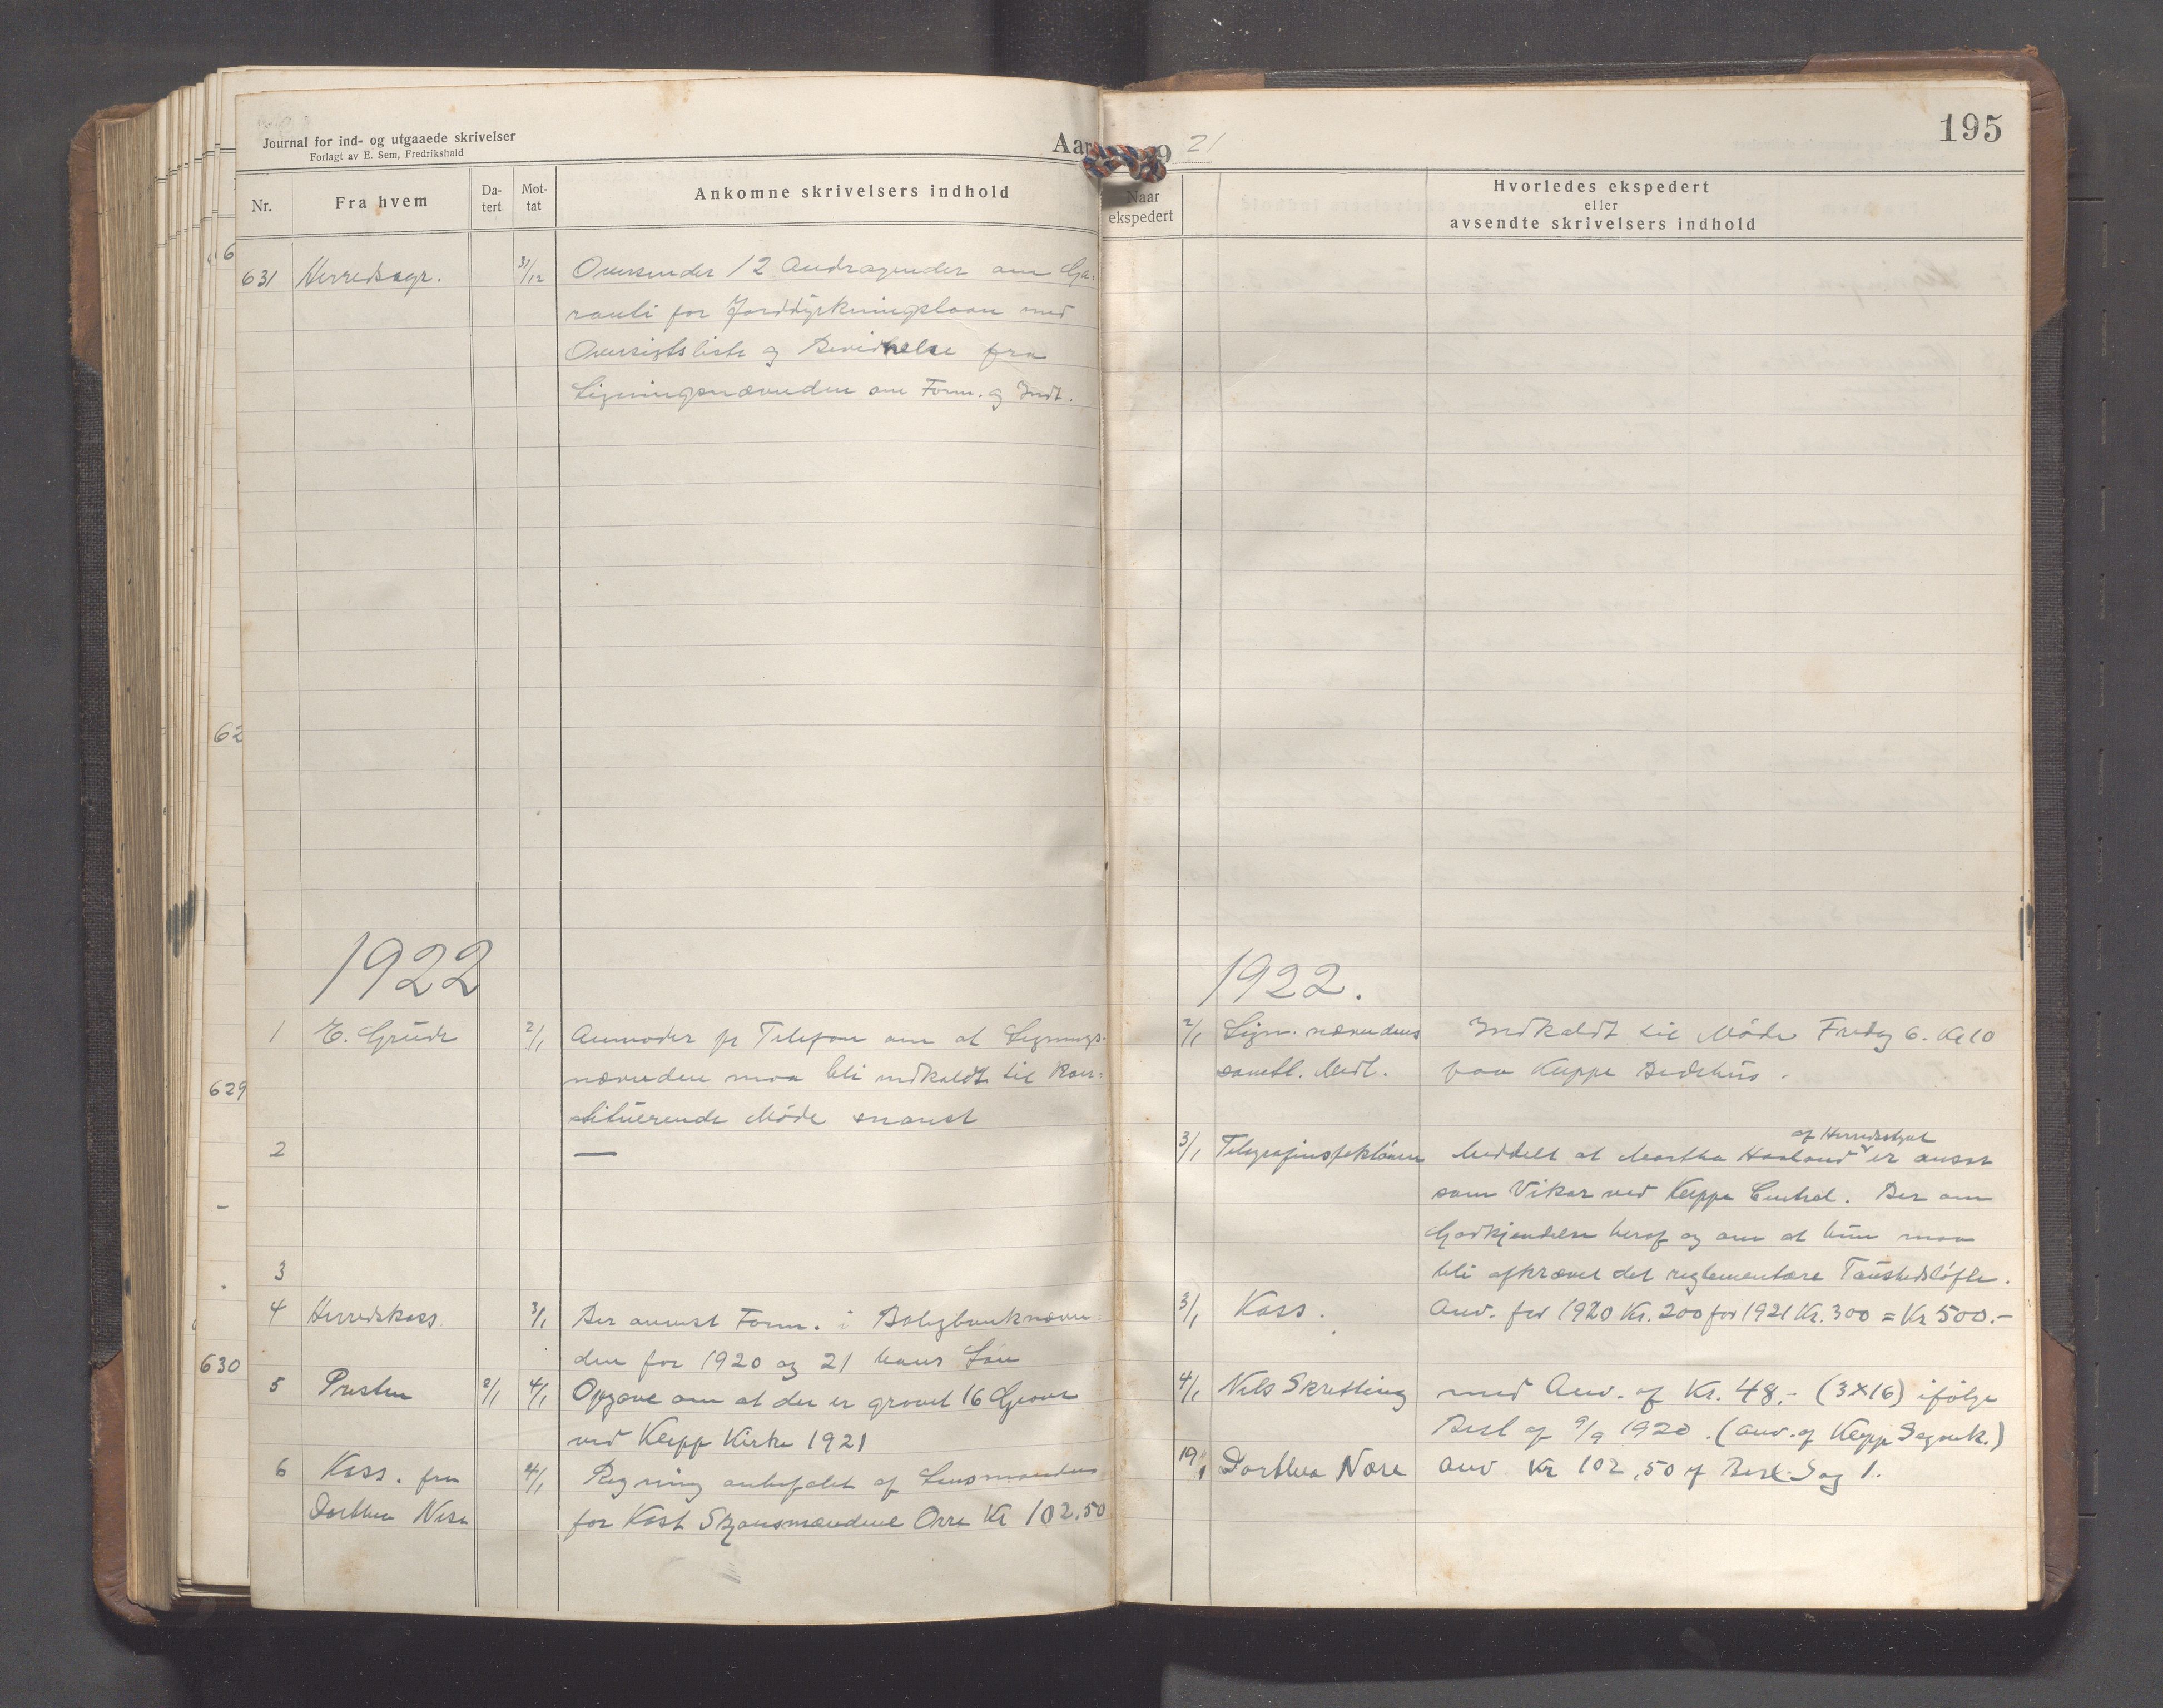 Journal for ind- og utgaaede skrivelser
Forlagt av E. Sem, Fredrikshald
Aar 19 21
195
Nr.
Fra hvem
Da-
tert
Mot-
tat
Ankomne skrivelsers indhold
Naar
ekspedert
Hvorledes ekspedert
eller
avsendte skrivelsers indhold
631 Herredsagr. 31/12 Oversender 12 Andragender om Ga-
ranti for Jorddyrkningslaan med
Oversigtsliste og Bevidnelse fra
Ligningsnævnden om Form. og Indt.
62
629
-
630
1922
1 E. Grude 2/1 Anmoder pr Telefon om at Lignings-
nævnden maa bli indkaldt til Kon-
stituerende Møde snarest
2 —
3
4 Herredskass 3/1 Ber anvist Form. i Boligbanknævn-
den for 1920 og 21 hans Løn
5 Presten 2/1 4/1 Opgave om at der er gravet 16 Grave
ved Klepp Kirke 1921
6 Kass. fra 4/1 Regning anbefalet af Lensmanden
Dorthea Nese for Kost Skjønsmændene Orre Kr 102,50
1922.
2/1 Lign. nævndens Indkaldt til Møde Fredag 6. Kl 10
samtl. Medl. paa Kleppe Bedehus.
af Herredsstyret
3/1 Telegrafinspektøren Meddelt at Martha Haaland er ansat
som Vikar ved Kleppe Central. Ber om
Godkjendelse heraf og om at hun maa
bli afkrævet det reglementære Taushedsløfte.
3/1 Kass. Anv. for 1920 Kr. 200 for 1921 Kr. 300 = Kr 500.-
4/1 Nils Skretting med Anv. af Kr. 48,- (3x16) ifølge
Besl af 9/9 1920. (anv. af Klepp Sognek.)
19/1 Dorthea Nese Anv Kr 102,50 if Besl. Sag 1.